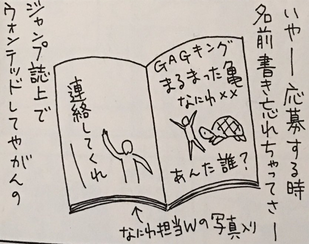 いやー応募する時
名前書き忘れちゃってさー
GAGキング
まるまった亀
なにわ××
あんた誰?
連絡してくれ
ジャンプ誌上で
ウォンテッドしてやがんの
なにわ担当Wの写真入り